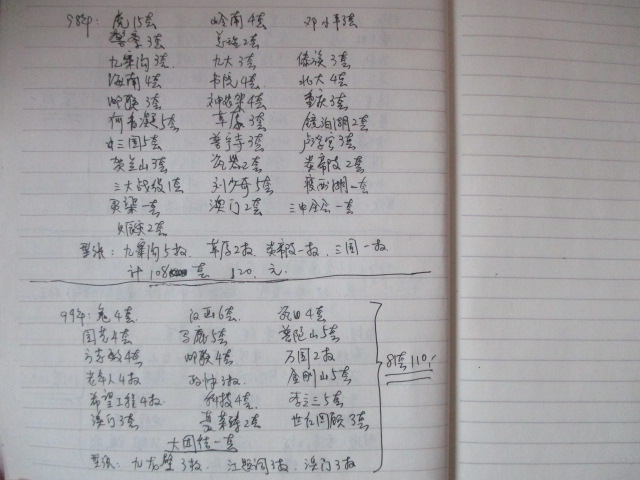 98年: 虎15套 岭南4套 邓小平3套
3套 2套
九寨沟3套 九大3套 傣族3套
海南4套 书院4套 北大4套
邮联3套 神农架4套 重庆3套
何香凝5套 草原3套 镜泊湖2套
水三国5套 普宁寺3套 卢浮宫3套
贺兰山3套 瓷器2套 炎帝陵2套
三大战役1套 刘少奇5套 瘦西湖一套
灵渠一套 澳门2套 三中全会一套
2套
型张: 九寨沟5枚. 草原2枚. 炎帝陵一枚. 三国一枚
计 108 套 120. 元.
99年: 兔4套 汉画6套 瓷田4套
国克4套 马鹿5套 普陀山5套
方志敏4套 邮联4套 万国2枚
老年人4枚 政协3枚 金刚山5套
希望工程4枚 科技4套 李立三5套
澳门3套 2套 世纪回顾3套
大团结一套
型张: 九龙壁3枚. 3枚. 澳门3枚
81套110,-